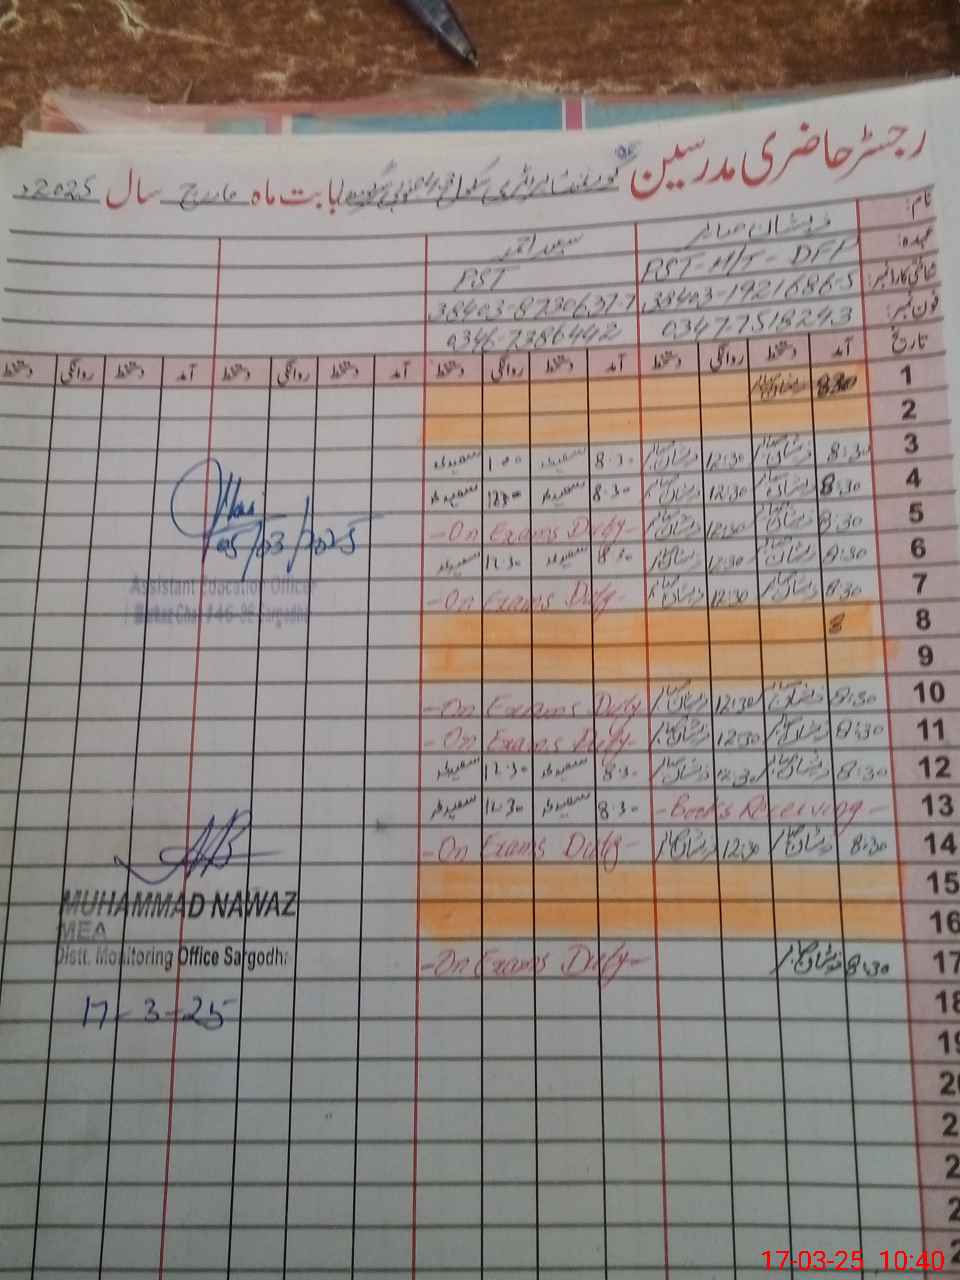 رجسٹر حاضری مدرسین گورنمنٹ پرائمری سکول بابت ماہ مارچ سال 2025ء
نام: ذیشان صابر سعید احمد
عہدہ: PST-H/T-DFP PST
شناختی کارڈ نمبر: 38403-1921686-5 38403-8730631-7
فون نمبر: 0347-7518243 0346-7386442
تاریخ آمد دستخط روانگی دستخط آمد دستخط روانگی دستخط آمد دستخط روانگی دستخط آمد دستخط روانگی دستخط
1 8:30 ذیشان صابر
2
3 8:30 ذیشان صابر 12:30 ذیشان صابر 8:30 سعید احمد 1:00 سعید احمد
4 8:30 ذیشان صابر 12:30 ذیشان صابر 8:30 سعید احمد سعید احمد
5 8:30 ذیشان صابر 12:30 ذیشان صابر -On Exams Duty-
6 8:30 ذیشان صابر 12:30 ذیشان صابر 8:30 سعید احمد 12:30 سعید احمد
7 8:30 ذیشان صابر 12:30 ذیشان صابر -On Exams Duty-
8 8
9
10 8:30 ذیشان صابر 12:30 ذیشان صابر -On Exams Duty
11 8:30 ذیشان صابر 12:30 ذیشان صابر -On Exams Duty-
12 8:30 ذیشان صابر 12:30 ذیشان صابر 8:30 سعید احمد 12:30 سعید احمد
13 -Books Receiving- 8:30 سعید احمد 12:30 سعید احمد
14 8:30 ذیشان صابر 12:30 ذیشان صابر -On Exams Duty-
15
16
17 8:30 ذیشان صابر -On Exams Duty-
18
19
05/03/2025
Assistant Education Officer
Markaz Chak # 46-SB Sargodha
MUHAMMAD NAWAZ
MEA
Distt. Monitoring Office Sargodha
17-3-25
17-03-25 10:40